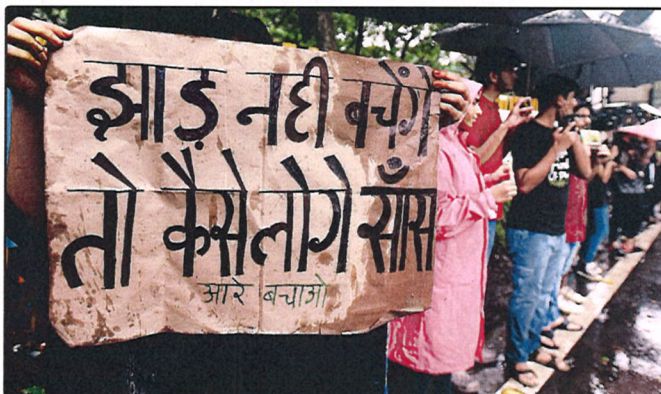 झाड़ नही बचेंगे
तो कैसे लोगे साँस
आरे बचाओ